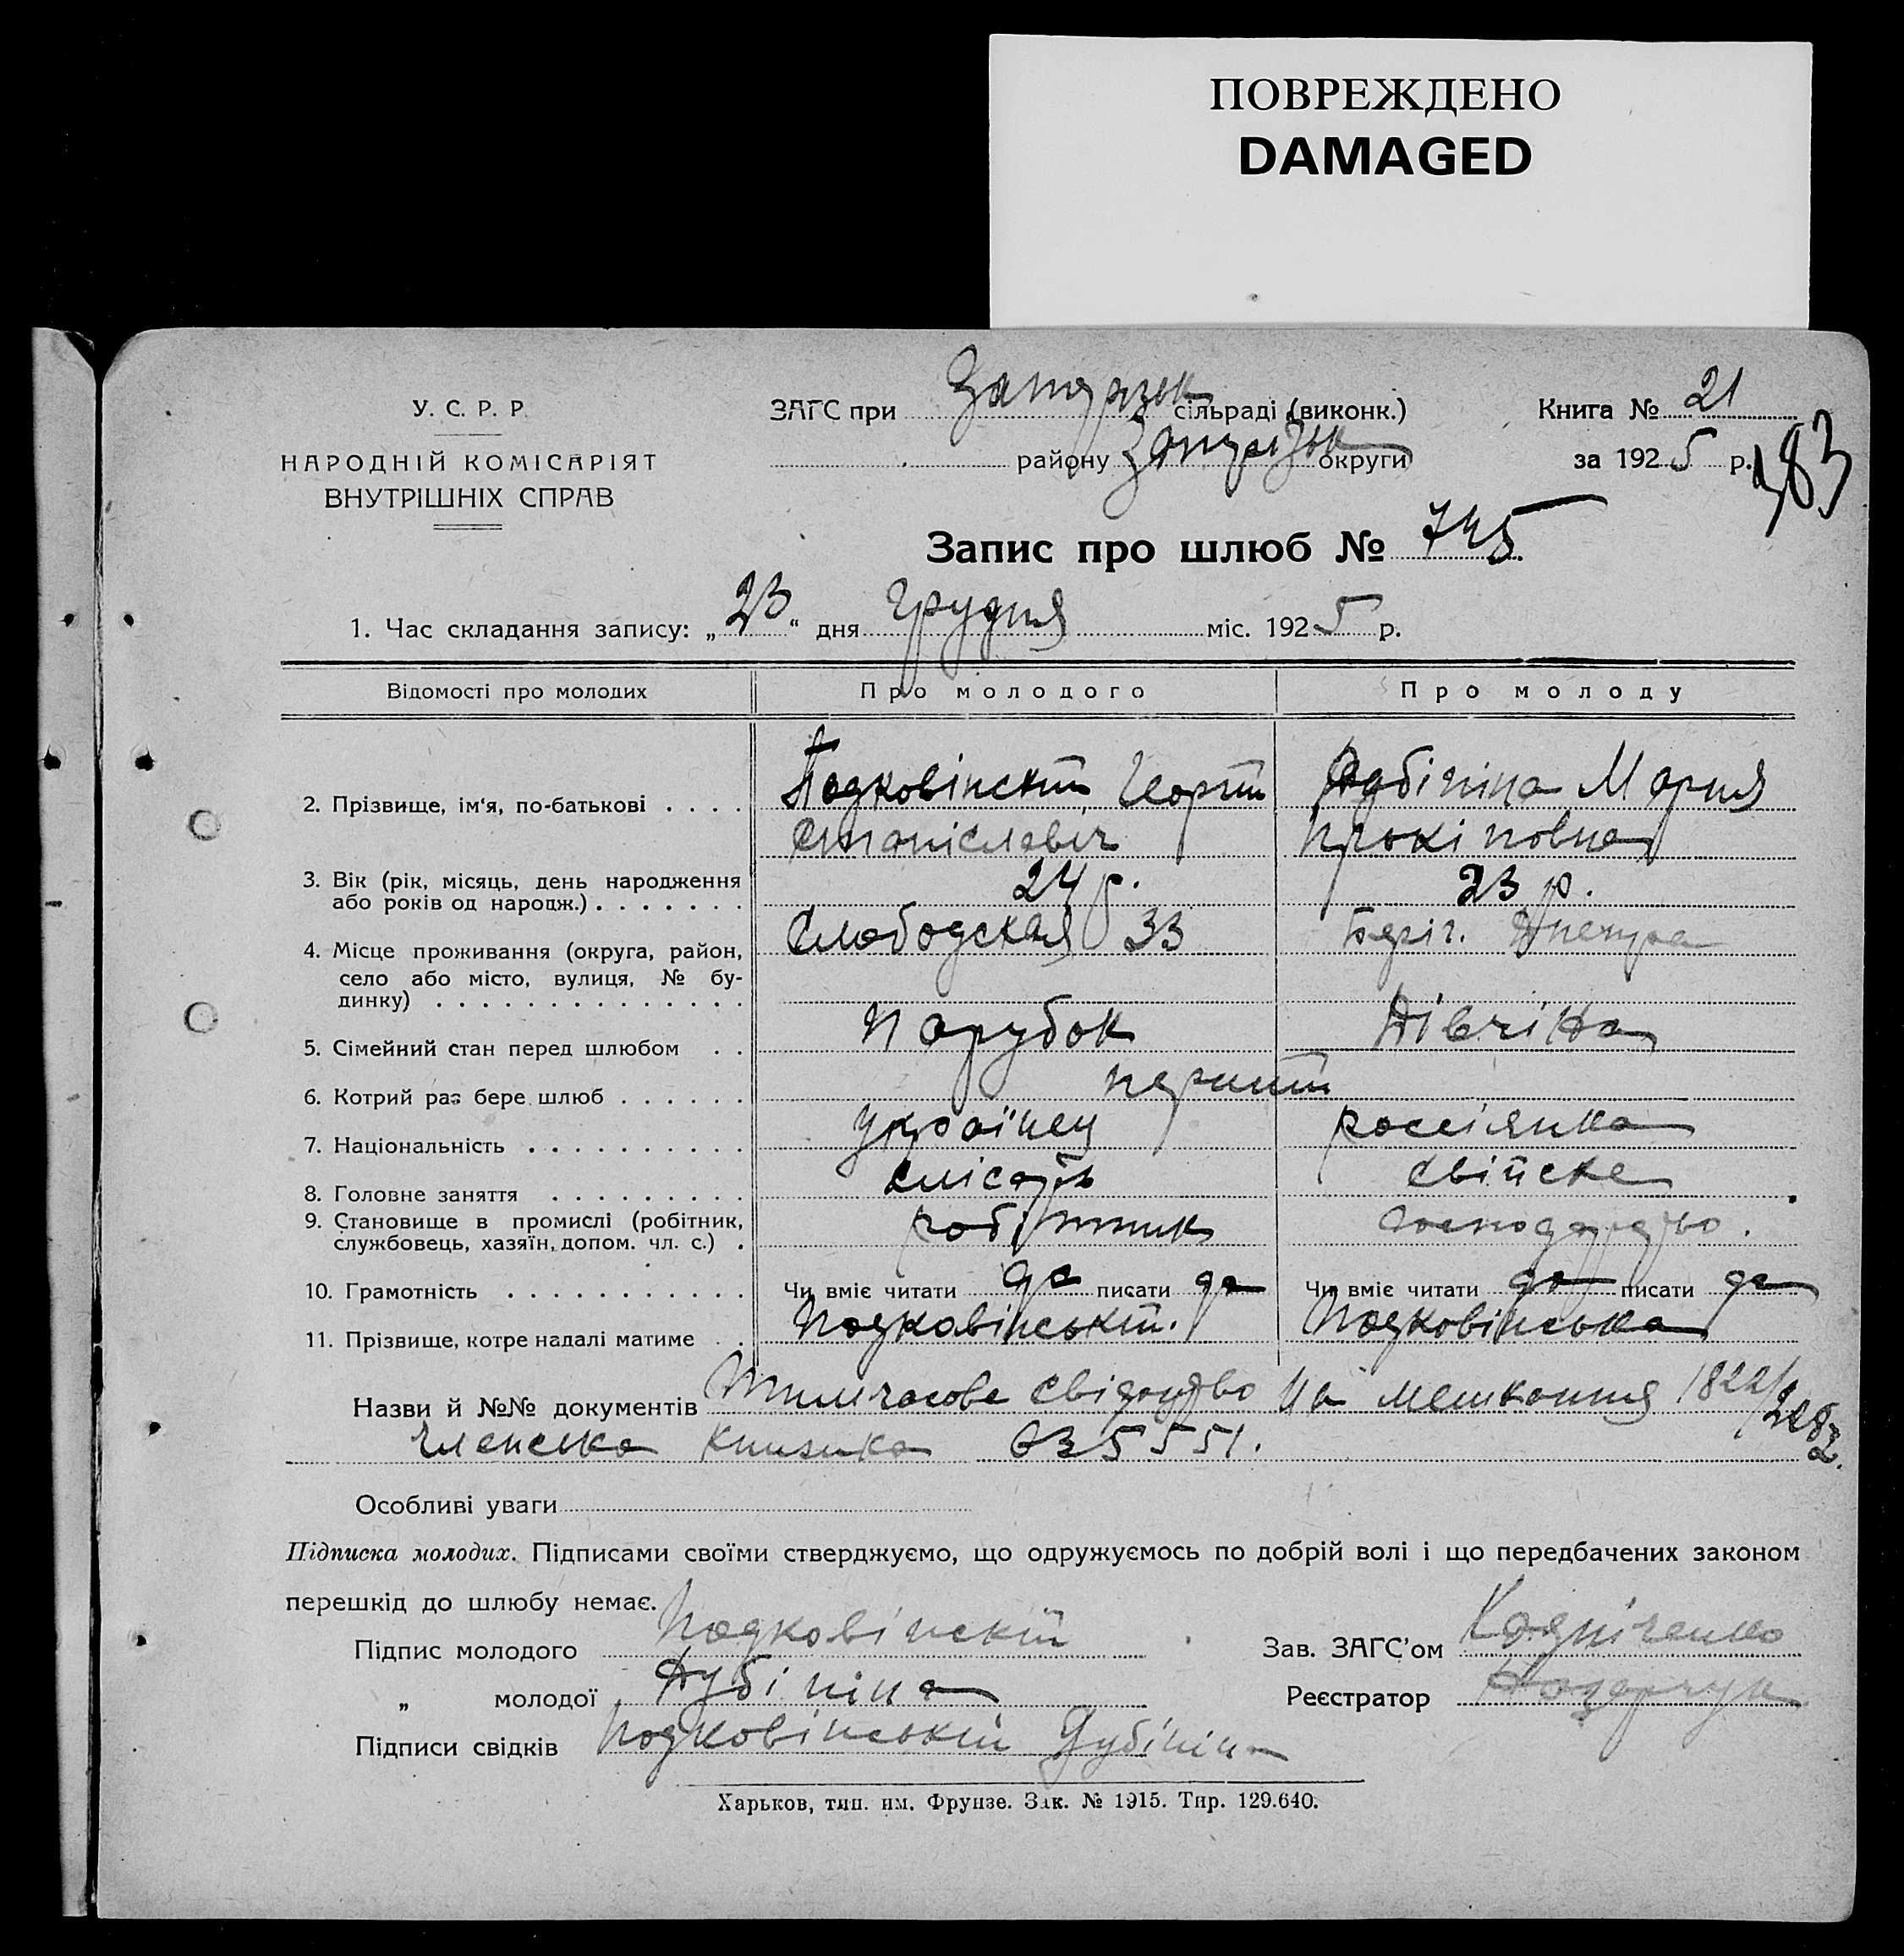 ПОВРЕЖДЕНО
DAMAGED
У. С. Р. Р.
НАРОДНІЙ КОМІСАРІЯТ
ВНУТРІШНІХ СПРАВ
ЗАГС при сільраді (виконк.)
району округи
Книга № 21
за 1925 р.
183
Запис про шлюб № 745
1. Час складання запису: „23“ дня Грудня міс. 1925 р.
Відомості про молодих Про молодого Про молоду
2. Прізвище, ім'я, по-батькові . . . . Подковінскій Георгій Дубініна Мария
Станіславіч Прокіповна
3. Вік (рік, місяць, день народження або років од народж.) . . . . . . . 24 р. 23 р.
4. Місце проживання (округа, район, село або місто, вулиця, № будинку) . . . . . . . . . . . . . . Слободская 33 Беріг. Днепра
5. Сімейний стан перед шлюбом . . Парубок Дівчіна
6. Котрий раз бере шлюб . . . . . . перший
7. Національність . . . . . . . . . . українец россіянка
8. Головне заняття . . . . . . . . . слісарь свійске
9. Становище в промислі (робітник, службовець, хазяїн, допом. чл. с.) . робітник господарство.
10. Грамотність . . . . . . . . . . . Чи вміє читати да писати да Чи вміє читати да писати да
11. Прізвище, котре надалі матиме . . Подковінський. Подковінська
Назви й №№ документів Тимчасове свідоцтво на мешкання 1822/
Членська книжка 635551.
Особливі уваги
Підписка молодих. Підписами своїми стверджуємо, що одружуємось по добрій волі і що передбачених законом
перешкід до шлюбу немає.
Підпис молодого Подковінскій Зав. ЗАГС'ом
„ молодої Дубініна Реєстратор
Підписи свідків Подковінській Дубініна
Харьков, тип. им. Фрунзе. Зак. № 1915. Тир. 129.640.